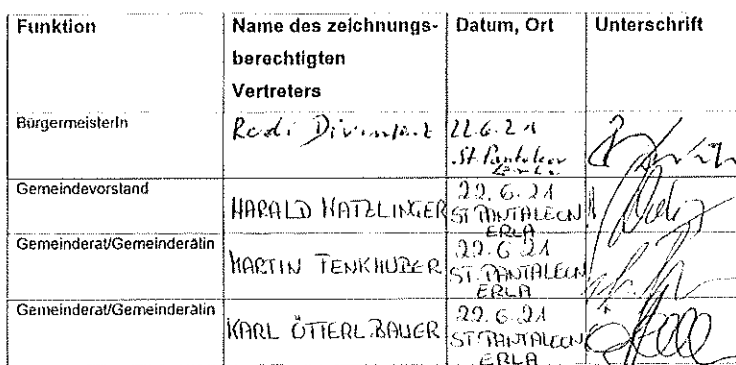 Funktion
Name des zeichnungs-
berechtigten
Vertreters
Datum, Ort
Unterschrift
BürgermeisterIn
Rudi Divinzenz
22.6.21
St. Pantaleon
Erla
Gemeindevorstand
HARALD HATZLINGER
22.6.21
ST. PANTALEON
ERLA
Gemeinderat/Gemeinderätin
MARTIN TENKHUBER
22.6.21
ST. PANTALEON
ERLA
Gemeinderat/Gemeinderätin
KARL ÖTTERLBAUER
22.6.21
ST. PANTALEON
ERLA